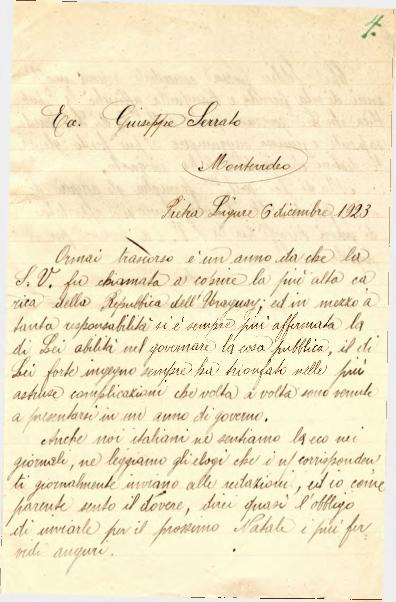 4.
Ec. Giuseppe Serrato
Montevideo
Pietra Ligure 6 dicembre 1923
Ormai trascorso è un anno da che la
S. V. fu chiamata a coprire la più alta ca
rica della Repubblica dell'Uraguay; ed in mezzo a
tanta responsabilità si è sempre più affermata la
di Lei abilità nel governare la cosa pubblica, il di
Lei forte ingegno sempre ha trionfato nelle più
astruse complicazioni che volta a volta sono venute
a presentarsi in un anno di governo.
Anche noi italiani ne sentiamo la eco nei
giornali, ne leggiamo gli elogi che i corrisponden
ti giornalmente inviano alle redazioni, ed io come
parente sento il dovere, direi quasi l'obbligo
di inviarle per il prossimo Natale i più fer
vidi auguri.